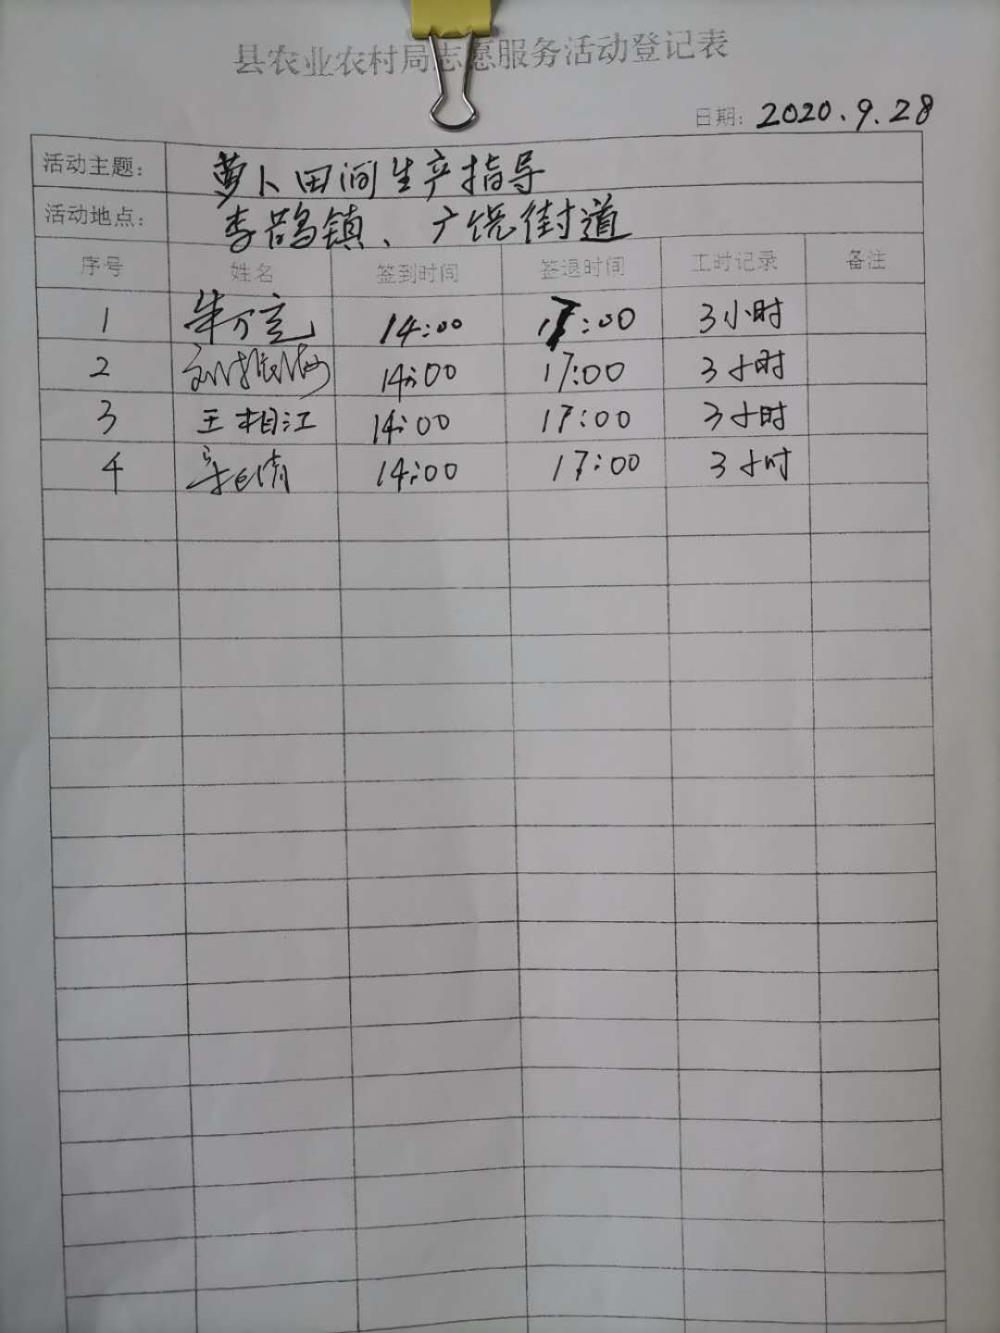 县农业农村局志愿服务活动登记表
日期: 2020.9.28
活动主题: 萝卜田间生产指导
活动地点: 李鹊镇、广饶街道
序号 姓名 签到时间 签退时间 工时记录 备注
1 14:00 17:00 3小时
2 14:00 17:00 3小时
3 王相江 14:00 17:00 3小时
4 14:00 17:00 3小时